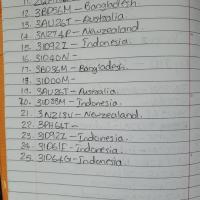 12. 3BD36M - Bangladesh
13. 3AU26T - Australia
14. 3NZ74P - Newzealand
15. 31D92Z - Indonesia.
16. 31D40N -
17. 3BD36M - Bangladesh.
18. 31D00M -
19. 3AU26T - Australia.
20. 31D88M - Indonesia.
21. 3NZ18V - Newzealand.
22. 3PH64T -
23. 31D92Z - Indonesia.
24. 31D61F - Indonesia.
25. 31D64G - Indonesia